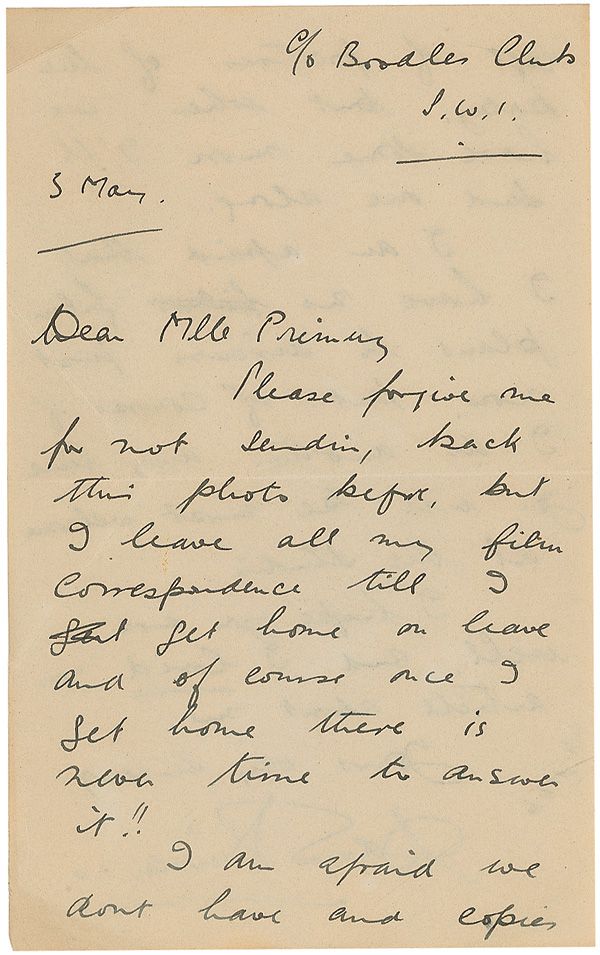 c/o Boodles Club
S.W.1.
3 May.
Dear Mlle
Please forgive me
for not sendin, back
this photo before, but
I leave all my film
correspondence till I
get home on leave
and of course once I
get home there is
never time to answer
it!!
I am afraid we
dont have and copies